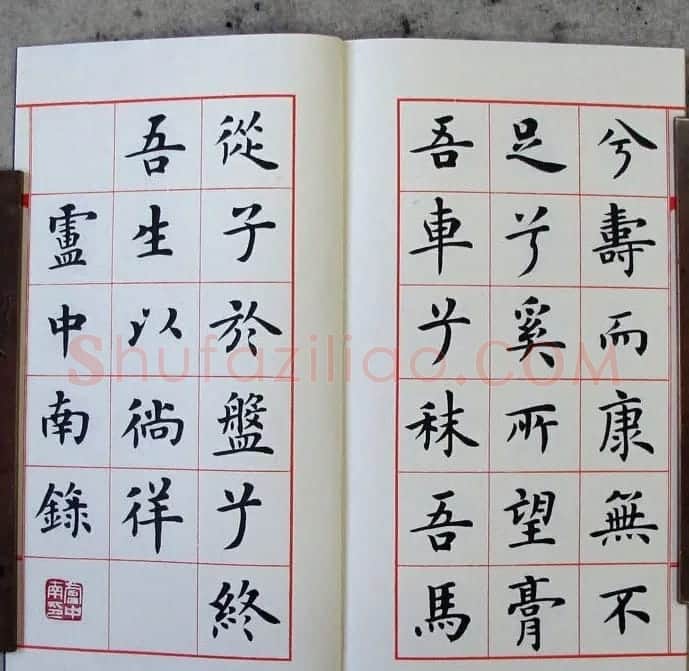 兮壽而康無不
足兮奚所望膏
吾車兮秣吾馬
從子於盤兮終
吾生以徜徉
盧中南錄
盧中南印
Shufaziliao.COM